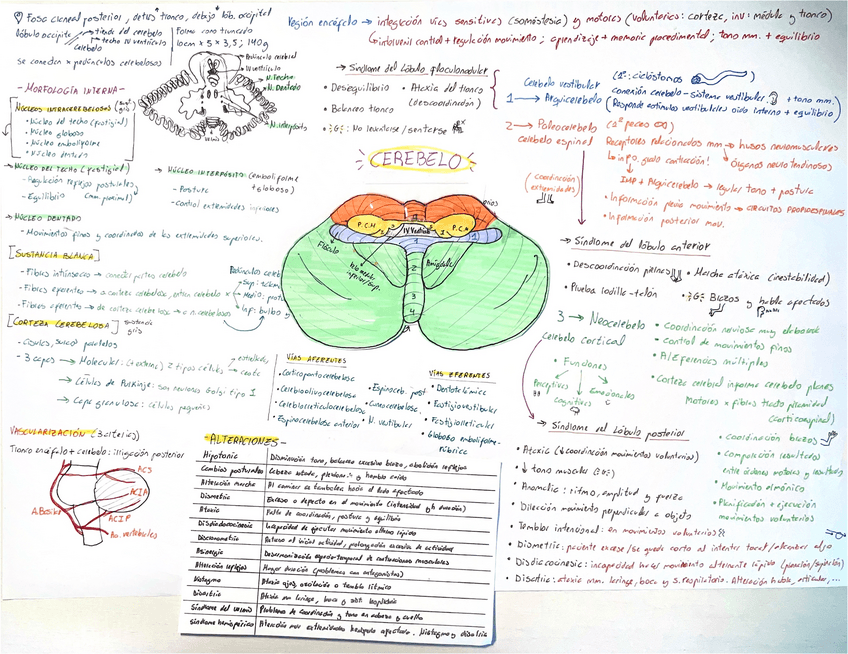 Fosa craneal posterior, detrás tronco, debajo lób. occipital
lóbulo occipital
tienda del cerebelo
cerebelo
techo IV ventrículo
Forma cono truncado
10cm x 5 x 3,5; 140g
se conecta x pedúnculos cerebelosos
Región encéfalo → integración vías sensitivas (somestesia) y motoras (voluntarios: corteza, inv: médula y tronco)
control + regulación movimiento; aprendizaje + memoria procedimental; tono mm. + equilibrio
Pedúnculo cerebral
IV ventrículo
N. Techo
N. Dentado
N. Interpósito
Vermis
- MORFOLOGÍA INTERNA -
[NÚCLEOS INTRACEREBELOSOS] (sust. gris)
• Núcleo del techo (fastigial)
• Núcleo globoso
• Núcleo emboliforme
• Núcleo dentado
→ NÚCLEO DEL TECHO (fastigial)
- Regulación reflejos posturales
- Equilibrio (m. proximal)
→ NÚCLEO INTERPÓSITO (emboliforme + globoso)
- Postura
- Control extremidades inferiores
→ NÚCLEO DENTADO
- Movimientos finos y coordinados de las extremidades superiores.
[SUSTANCIA BLANCA]
- Fibras intrínsecas → conectan partes cerebelo
- Fibras aferentes → a corteza cerebelosa, entran cerebelo x
- Fibras eferentes → de corteza cerebelosa → a n. cerebelosos
Pedúnculos cereb
Sup:
Medio:
Inf: bulbo
[CORTEZA CEREBELOSA] sustancia gris
- Cisuras, surcos paralelos
- 3 capas → Molecular: (+ externa) 2 tipos células
estrelladas
cesta
→ Células de Purkinje: son neuronas Golgi tipo I
→ Capa granulosa: células pequeñas
VASCULARIZACIÓN (3 arterias)
Tronco encéfalo + cerebelo: irrigación posterior
ACS
ACIA
ACIP
A. Basilar
Aa. vertebrales
→ Síndrome del lóbulo floculonodular
• Desequilibrio
• Balanceo tronco
• Ataxia del tronco
(descoordinación)
• No levantarse/sentarse
CEREBELO
P.C.M
P.C.M
IV Ventrículo
Flóculo
Velo medular inferior/sup.
Amígdala
1
2
3
4
VÍAS AFERENTES
• Corticopontocerebelosa
• Cerebroolivocerebelosa
• Cerebroreticulocerebelosa
• Espinocerebelosa anterior
• Espinocereb. post
• Cuneocerebelosa
• N. vestibular
VÍAS EFERENTES
• Dentotalámica
• Fastigiovestibular
• Fastigioreticular
• Globoso emboliforme-rúbrica
Cerebelo vestibular
1 → Arquicerebelo
(1º: ciclóstomos)
conexión cerebelo - sistema vestibular + tono mm.
(Responde estímulos vestibulares oído interno + equilibrio)
2 → Paleocerebelo (1º peces)
cerebelo espinal
Receptores relacionados mm → husos neuromusculares
↳ info. grado contracción!
órganos neurotendinosos
Info + Arquicerebelo → regular tono + postura
• Información previa movimiento → CIRCUITOS PROPIOESPINALES
• Información posterior mov.
(coordinación extremidades)
→ Síndrome del lóbulo anterior
• Descoordinación piernas
• Marcha atáxica (inestabilidad)
• Prueba rodilla-talón
• Brazos y habla afectados
3 → Neocerebelo
cerebelo cortical
• Funciones
Perceptivas
Cognitivas
Emocionales
• Coordinación nerviosa muy elaborada
• control de movimientos finos
• Aferencias múltiples
• Corteza cerebral informa cerebelo planes
motores x fibras tracto piramidal
(corticoespinal)
• Coordinación brazos
• Comparación resultados
entre órdenes motoras y resultados
• Movimiento armónico
• Planificación + ejecución
movimientos voluntarios
→ Síndrome del lóbulo posterior
• Ataxia (↓ coordinación movimientos voluntarios)
• ↓ tono muscular
• Anomalía: ritmo, amplitud y fuerza
• Dirección movimiento perpendicular a objeto
• Temblor intencional: en movimientos voluntarios
• Dismetría: paciente excese/se quede corto al intentar tocar/alcanzar algo
• Disdiadococinesia: incapacidad hacer movimiento alternante rápido (pronación/supinación)
• Disartria: ataxia mm. laringe, boca y s. respiratorio. Alteración habla, articular, ...
- ALTERACIONES -
Hipotonía | Disminución tono, balanceo excesivo brazo, abolición reflejos
Cambios posturales | Cabeza rotada, y hombro caído
Alteración marcha | Al caminar se tambalea hacia el lado afectado
Dismetría | Exceso o defecto en el movimiento (intensidad y/o duración)
Ataxia | Falta de coordinación, postura y equilibrio
Disdiadococinesia | Incapacidad de ejecutar movimiento alterno rápido
Discronometría | Retraso al iniciar actividad, prolongación excesiva de actividad
Asinergia | Desarmonización espacio-temporal de contracciones musculares
Alteración reflejos | Mayor duración (problemas con antagonistas)
Nistagmo | Ataxia ojos, oscilación o temblor rítmico
Disartria | Ataxia mm laringe, boca y sist. respiratorio
Síndrome del vermis | Problema de coordinación y tono en cabeza y cuello
Síndrome hemisférico | Alteración mov. extremidades hemicuerpo afectado. Nistagmo y disartria